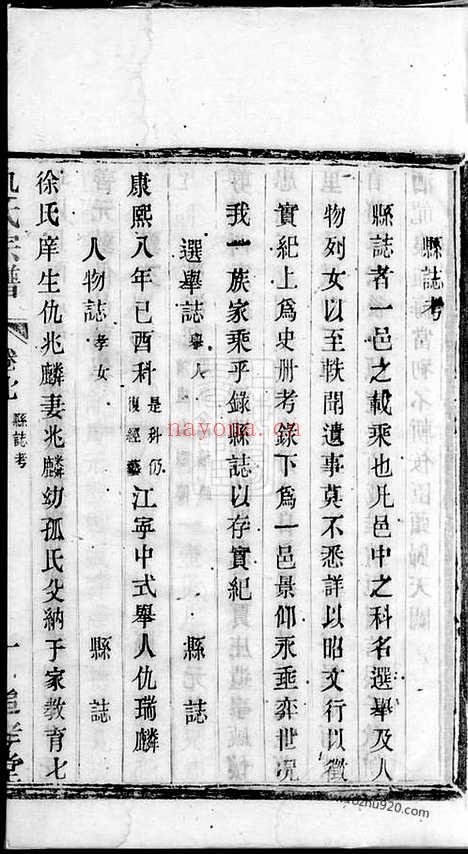 縣誌考
縣誌者一邑之載乘也凡邑中之科名選舉及人
物列女以至軼聞遺事莫不悉詳以昭文行以徵
實紀上爲史册考錄下爲一邑景仰永垂弈世况
我一族家乘乎錄縣誌以存實紀
選舉誌 舉人 縣誌
康熙八年己酉科 是科仍復經藝 江寧中式舉人仇瑞麟
人物誌 孝女 縣誌
徐氏庠生仇兆麟妻兆麟幼孤氏父納于家教育七
仇氏宗譜 卷七 縣誌考 一 堂
nayona.cn